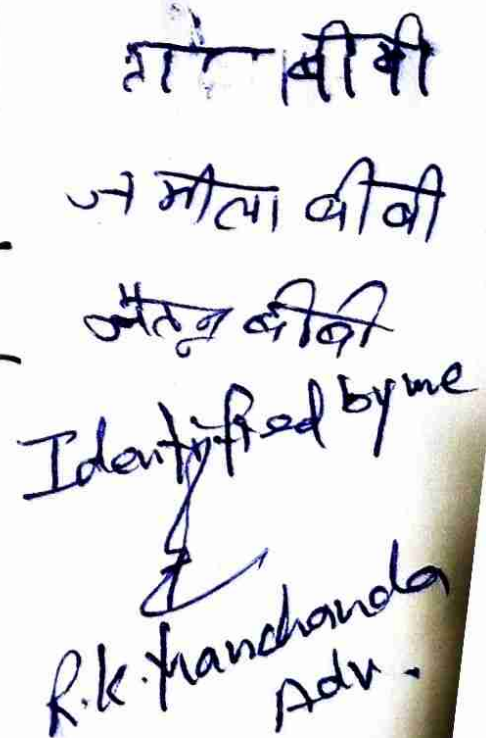 बीबी
जमीला बीबी
जैतून बीबी
Identified by me
R.K. Manchanda
Adv.